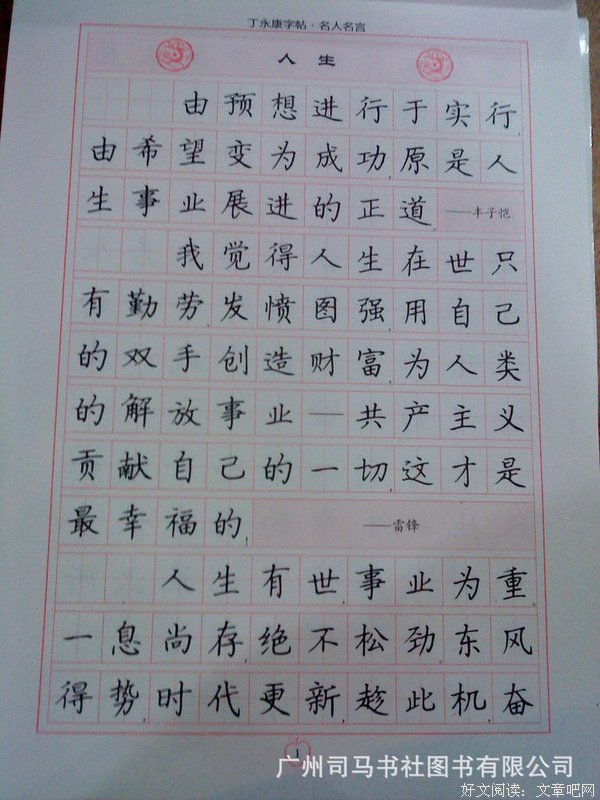 丁永康字帖·名人名言
人生
由预想进行于实行
由希望变为成功原是人
生事业展进的正道 ——丰子恺
我觉得人生在世只
有勤劳发愤图强用自己
的双手创造财富为人类
的解放事业—共产主义
贡献自己的一切这才是
最幸福的 ——雷锋
人生有世事业为重
一息尚存绝不松劲东风
得势时代更新趁此机奋
1
广州司马书社图书有限公司
好文阅读：文章吧网